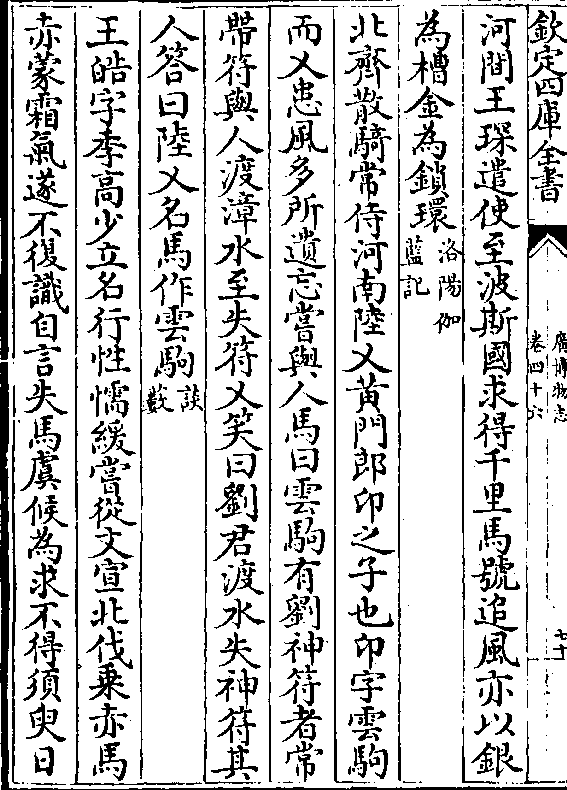 欽定四庫全書
廣博物志
卷四十六
七十
河間王琛遣使至波斯國求得千里馬號追風亦以銀
為槽金為鎖環洛陽伽
藍記
北齊散騎常侍河南陸乂黃門郎卬之子也卬字雲駒
而乂患風多所遺忘嘗與人馬曰雲駒有劉神符者常
帶符與人渡漳水至失符乂笑曰劉君渡水失神符其
人答曰陸乂名馬作雲駒談
藪
王皓字季高少立名行性懦緩嘗從文宣北伐乗赤馬
赤蒙霜氣遂不復識自言失馬虞候為求不得須臾日